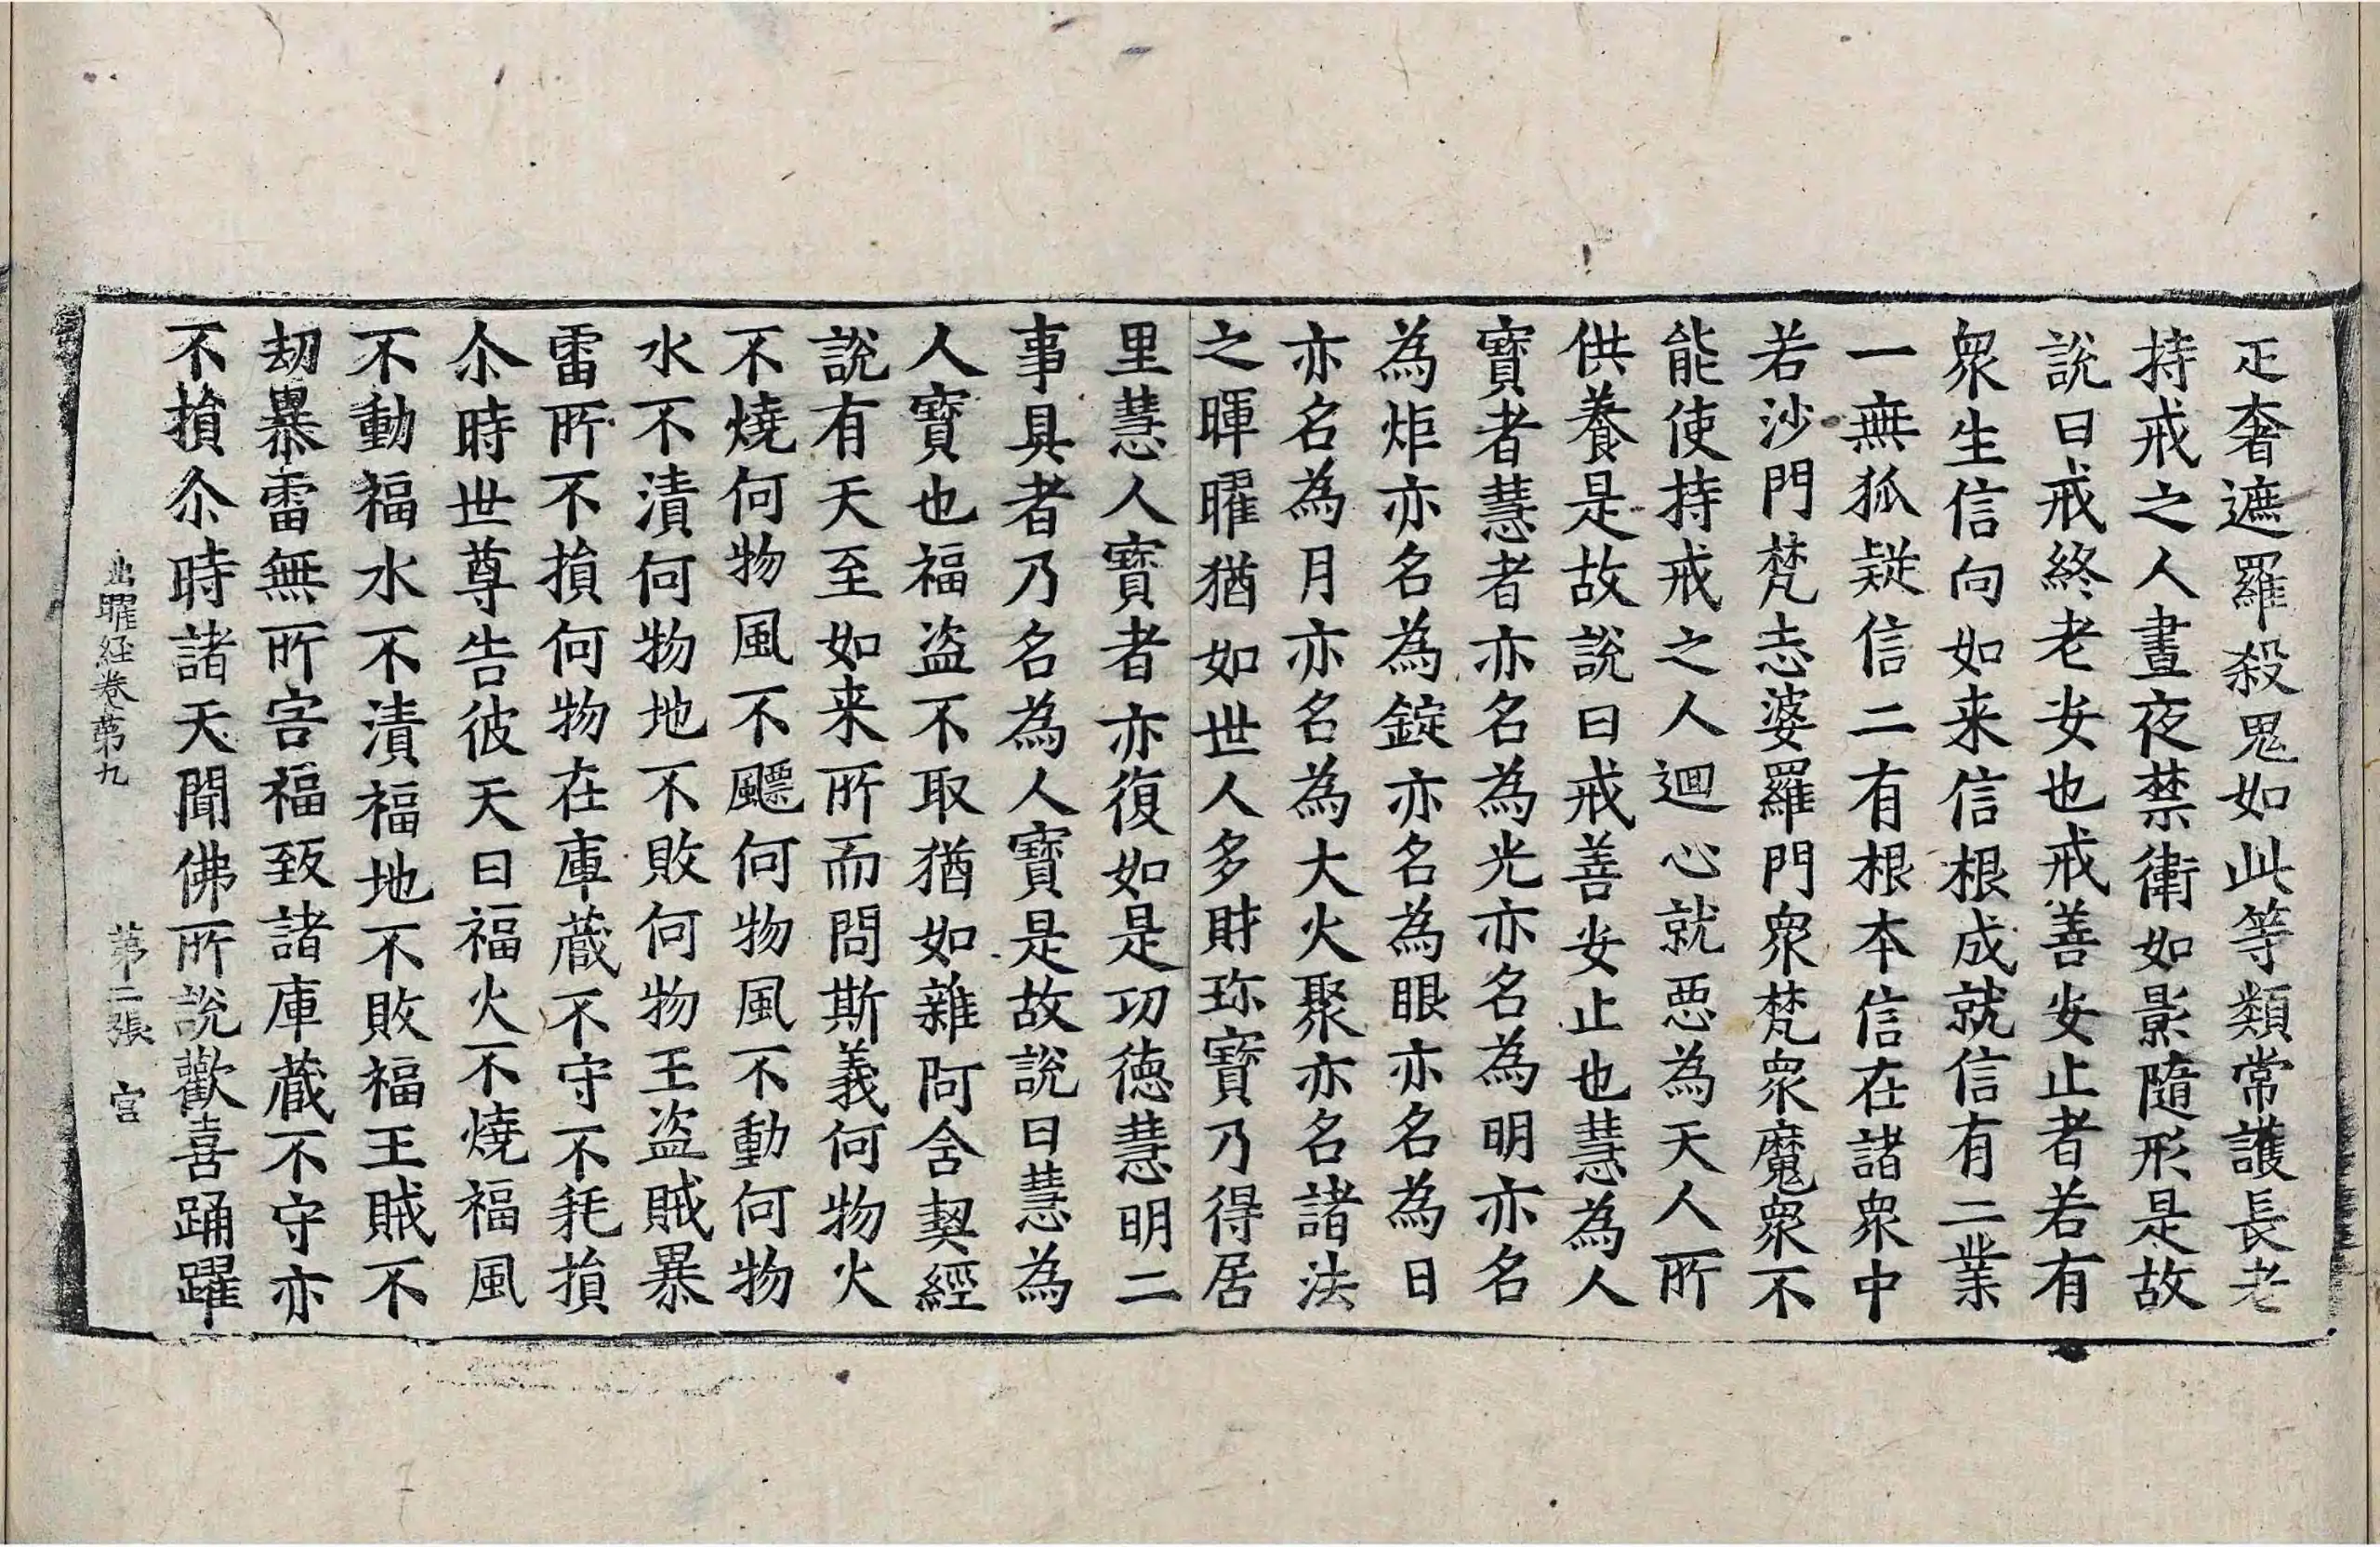 疋奢遮羅殺鬼如此等類常護長老
持戒之人晝夜禁衛如影隨形是故
說曰戒終老安也戒善安止者若有
衆生信向如来信根成就信有二業
一無狐疑信二有根本信在諸衆中
若沙門梵志婆羅門衆梵衆魔衆不
能使持戒之人迴心就惡為天人所
供養是故說曰戒善安止也慧為人
寶者慧者亦名為光亦名為明亦名
為炬亦名為錠亦名為眼亦名為日
亦名為月亦名為大火聚亦名諸法
之暉曜猶如世人多財珎寶乃得居
里慧人寶者亦復如是功德慧明二
事具者乃名為人寶是故說曰慧為
人寶也福盜不取猶如雜阿含契經
說有天至如来所而問斯義何物火
不燒何物風不飄何物風不動何物
水不漬何物地不敗何物王盜賊暴
雷所不損何物在庫藏不守不耗損
尒時世尊告彼天曰福火不燒福風
不動福水不漬福地不敗福王賊不
劫暴雷無所害福致諸庫藏不守亦
不損尒時諸天聞佛所說歡喜踊躍
出曜経卷第九　第二張　官